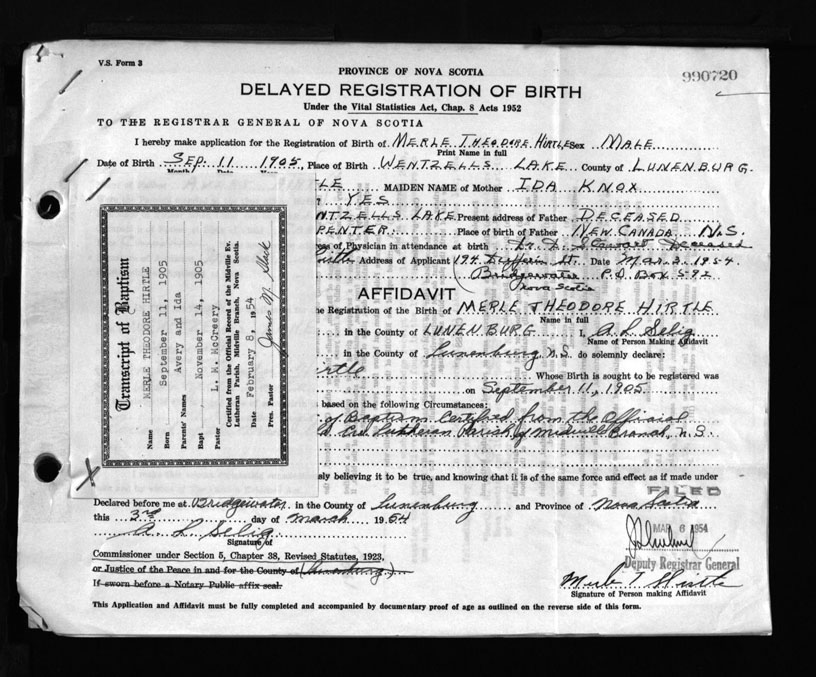 V.S. Form 3
PROVINCE OF NOVA SCOTIA
990720
DELAYED REGISTRATION OF BIRTH
Under the Vital Statistics Act, Chap. 8 Acts 1952
TO THE REGISTRAR GENERAL OF NOVA SCOTIA
I hereby make application for the Registration of Birth of MERLE THEODORE HIRTLE Sex MALE
Print Name in full
Date of Birth SEP. 11 1905, Place of Birth WENTZELLS LAKE County of LUNENBURG.
Month Date
TLE MAIDEN NAME of Mother IDA KNOX
YES
NTZELLS LAKE Present address of Father DECEASED
PENTER. Place of birth of Father NEW CANADA N.S.
ess of Physician in attendance at birth Dr. D. Stewart Deceased
Address of Applicant 194 Dufferin St. Date Mar. 3. 1954.
Bridgewater P.O. Box 592
Nova Scotia
AFFIDAVIT
he Registration of the Birth of MERLE THEODORE HIRTLE
Name in full
in the County of LUNENBURG I, A. L. Selig
Name of Person Making Affidavit
in the County of Lunenburg N.S. do solemnly declare:
Hirtle Whose Birth is sought to be registered was
on September 11, 1905.
based on the following Circumstances:
of Baptism Certified from the Official
Ev. Lutheran Parish of Midville Branch, N.S.
sly believing it to be true, and knowing that it is of the same force and effect as if made under
FILED
Declared before me at Bridgewater in the County of Lunenburg and Province of Nova Scotia
this 3rd day of March 1954
MAR 6 1954
A. L. Selig
Signature of
Commissioner under Section 5, Chapter 38, Revised Statutes, 1923,
Deputy Registrar General
or Justice of the Peace in and for the County of (Lunenburg)
If sworn before a Notary Public affix seal.
Merle T. Hirtle
Signature of Person making Affidavit
This Application and Affidavit must be fully completed and accompanied by documentary proof of age as outlined on the reverse side of this form.
Transcript of Baptism
Name MERLE THEODORE HIRTLE
Born September 11, 1905
Parents' Names Avery and Ida
Bapt. November 14, 1905
Pastor L. M. McCreery
Certified from the Official Record of the Midville Ev.
Lutheran Parish, Midville Branch, Nova Scotia.
Date February 8, 1954
Pres. Pastor James M.